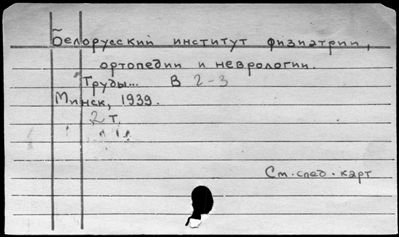 Белорусский институт физиатрии,
ортопедии и неврологии.
Труды... В 2-3
Минск, 1939.
2 т.
См. спец. карт